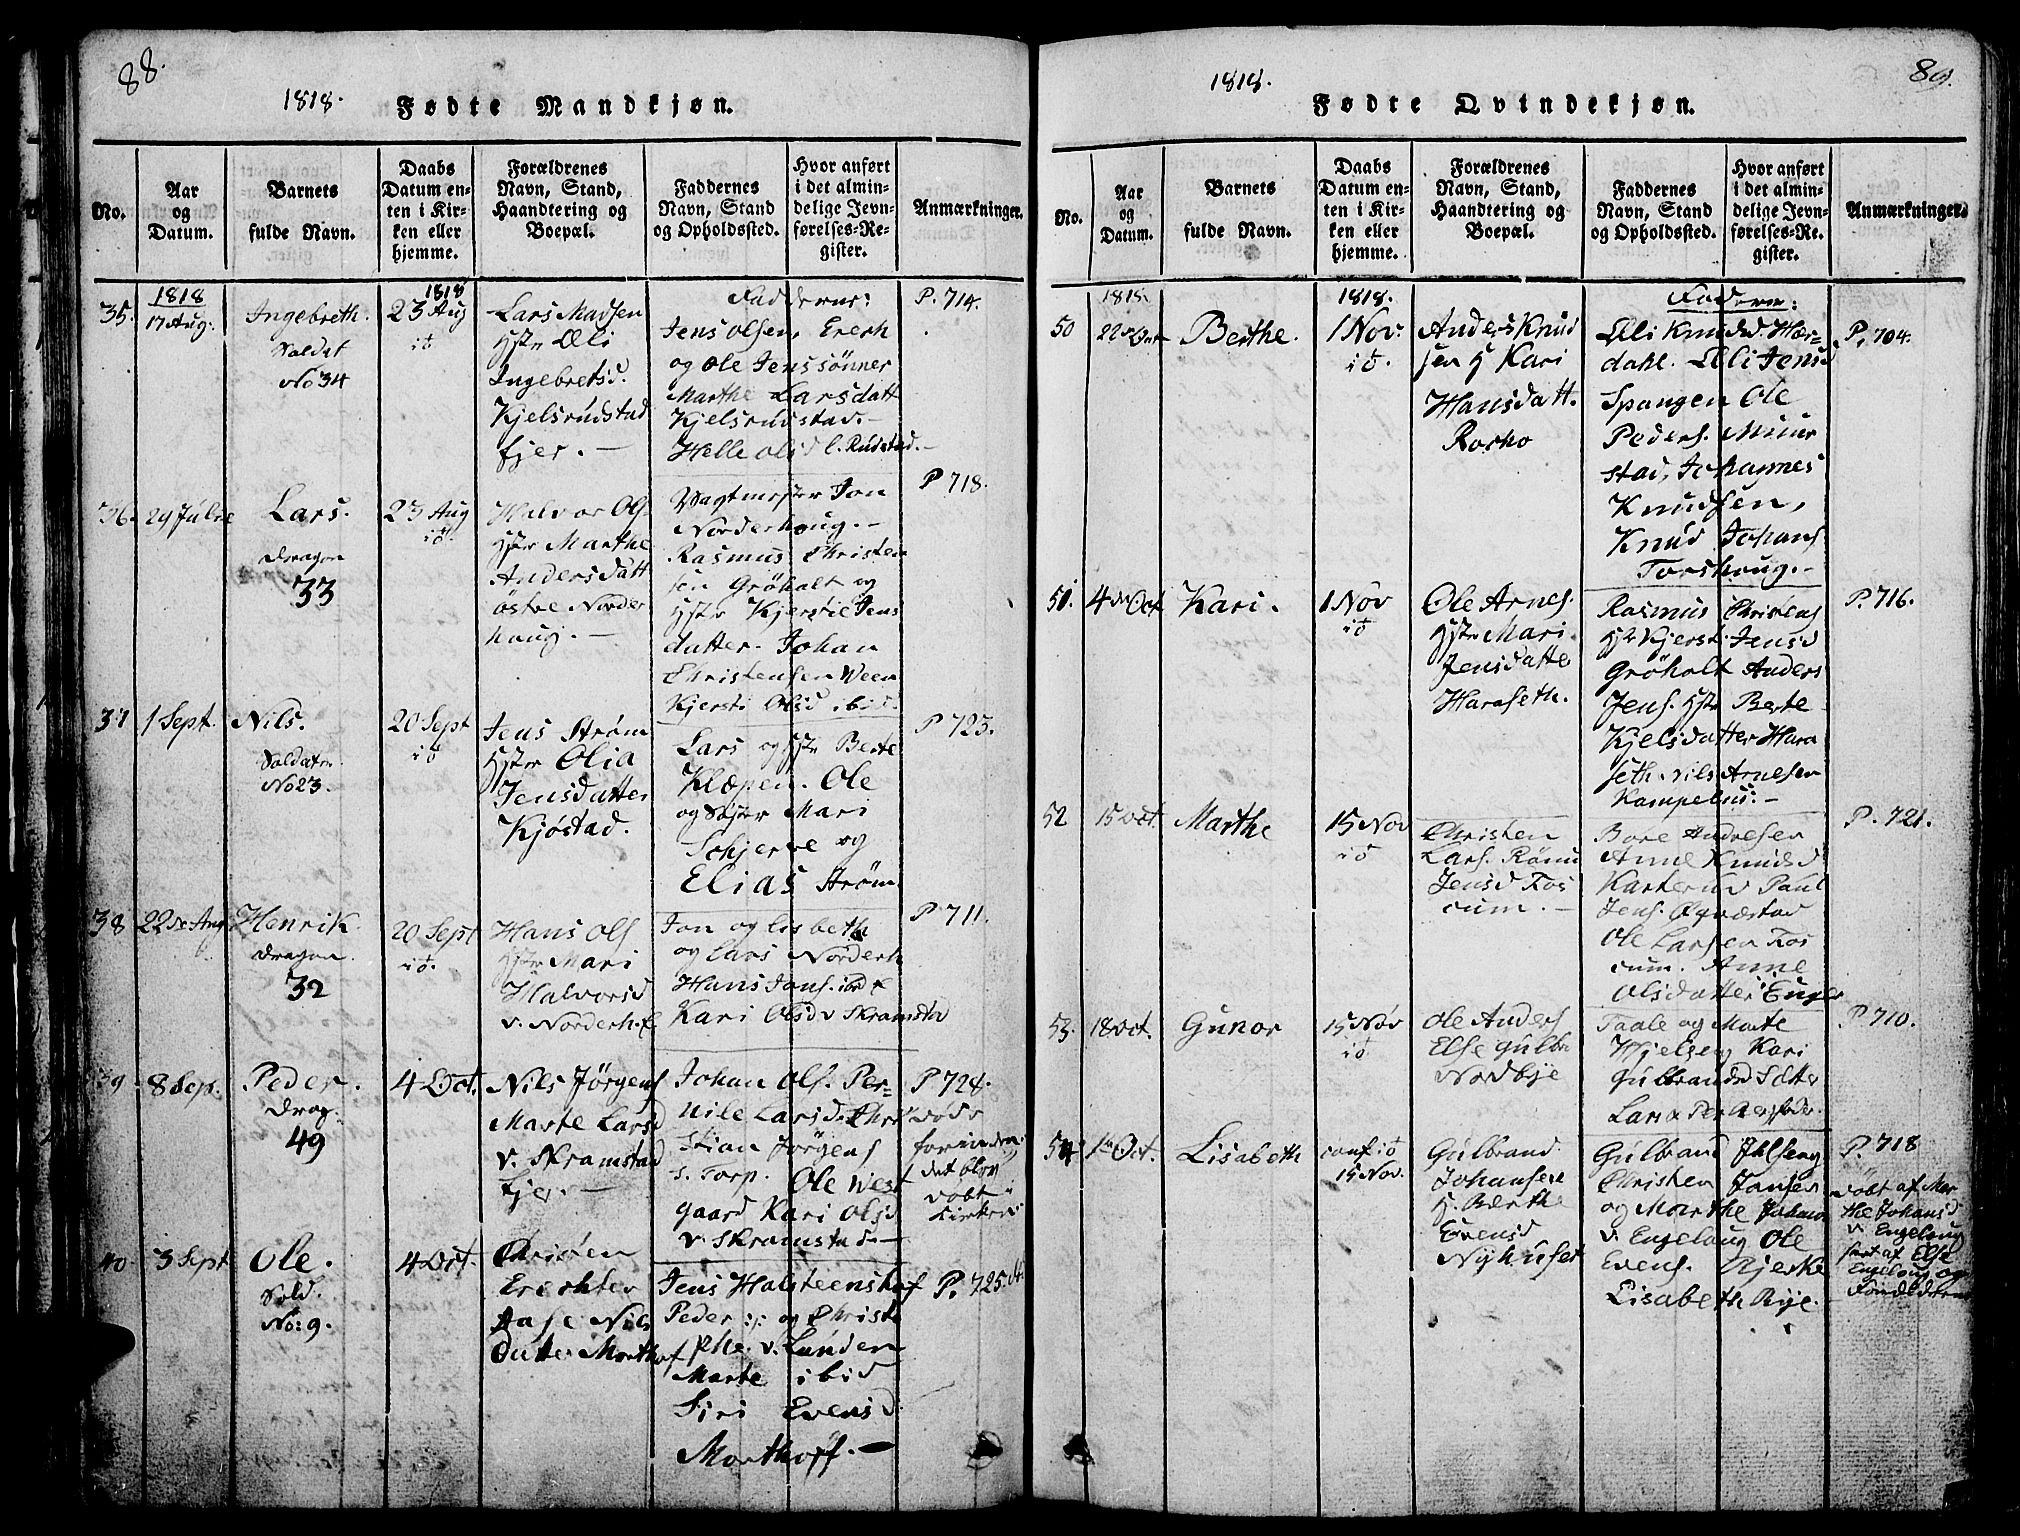 88.
1818.
Fødte Mandkjøn.
No.
Aar
og
Datum.
Barnets
fulde Navn.
Daabs
Datum en-
ten i Kir-
ken eller
hjemme.
Forældrenes
Navn, Stand,
Haandtering og
Boepæl.
Faddernes
Navn, Stand
og Opholdssted.
Hvor anført
i det almin-
delige Jevn-
førelses-Re-
gister.
Anmærkninger.
35.
1818
17 Aug.
Ingebreth.
Soldat
No 34
1818
23 Aug
Lars Madsen
Hstr Oli
Ingebretsd.
Kjelsrudstad
Ejer.
Fadderne:
Jens Olsen, Erech
og Ole Jenssønner
Marthe Larsdatt
Kjelsrudstad.
Helle Olsd l. Rudstad.
P. 714.
36.
Lars.
Dragon
33
23 Aug
Halvor Ols
Hstr Marthe
Andersdatt
östre Norder
houg.
Vagtmester Jon
Norderhoug.
Rasmus Christen
sen Gröholt og
Hstr Kjerstie Jens
datter. Johan
Christensen Ween
Kjersti Olsd ibid.
P 718.
37
1 Sept.
Nils.
Soldater
No 23.
20 Sept
Jens Strøm
Hstr Olia
Jensdatter
Kjöstad.
Lars og Hstr Berte
Klæpen. Ole
og Søster Mari
Schjerve og
Elias Strøm
P 723.
38
22 de Aug
Henrik
Dragon.
32
20 Sept
Hans Ols
Hstr Mari
Halvorsd
v. Norderh.
Jon og Lisbeth
og Lars Norderh
Hans Jons. ibd
Kari Olsd v Skramstad
P 711.
39
8 Sep.
Peder.
Drag.
49
4 Oct.
Nils Jörgens
Marte Larsd
v. Skramstad
Ejer.
Johan Ols. Per-
nile Larsd. Chri
stian Jörgens
s. Torp. Ole West
gaard Kari Olsd
v. Skramstad
P 724.
40.
3 Sept
Ole.
Sold.
No: 9.
4 Oct.
Christen
Aase Nils
Datter Morthof
Jens Halsteenshof
Peder :/: og Christi
v. Lunden
Marte ibid
Siri Evensd
Morthoff.
P. 725.
89.
1818.
Fødte Qvindekjøn.
No.
Aar
og
Datum.
Barnets
fulde Navn.
Daabs
Datum en-
ten i Kir-
ken eller
hjemme.
Forældrenes
Navn, Stand,
Haandtering og
Boepæl.
Faddernes
Navn, Stand
og Opholdssted.
Hvor anført
i det almin-
delige Jevn-
førelses-Re-
gister.
Anmærkninger.
50
1818.
Berthe.
1818.
1 Nov.
Anders Knud
sen H Kari
Hansdatt.
Rosho
Fadderne:
Oli Knudsd. Hær-
dahl. Oli Jensd
Spangen Ole
Peders. Muur
stad, Johannes
Knudsen,
Knud Johans
Torshoug.
P. 704.
51.
4 de Oct
Kari.
1 Nov
Ole Arnes.
Hstr Mari
Jensdatter
Haraseth.
Rasmus Christens
Hstr Kjersti Jensd
Gröholt Anders
Jens. Hstr Berte
Kjelsdatter Hara
seth. Nils Arnesen
P. 716.
52
15 Oct.
Marthe
15 Nov
Christen
Lars. Rönn
Jensd Fos
cum.
Bore Andresen
Anne Knudsd
Karterud Paul
Jens. Ogvestad
Ole Larsen Fos
cum. Anne
Olsdatter Enger
P. 721.
53.
18 Oct.
Gunor
15 Nov
Ole Anders
Else Gulbr
Nordbye
Taale og Marte
Hjelseng Kari
Gulbrandsd Sætter
P. 710.
54
Oct.
Lisabeth
conf
15 Nov.
Gulbrand
Johansen
H. Bærthe
Evensd
Nyhuset
Gulbrand Ihlseng
Christen Jonsen
og Marthe Johans
v. Engeloug Ole
Evens. Bjerke
Lisabeth Rye.
P. 718
Döbt af Mar
the Johansd
v. Engeloug